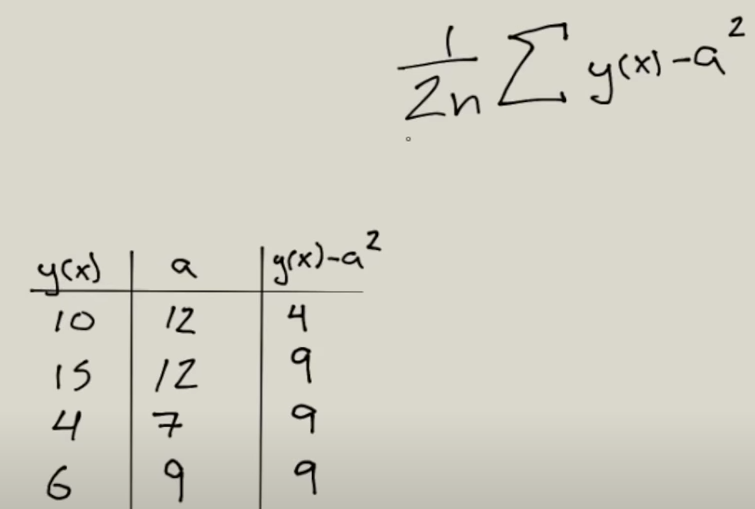 1/2n ∑ y(x)-a²
y(x) | a | y(x)-a²
10 | 12 | 4
15 | 12 | 9
4 | 7 | 9
6 | 9 | 9